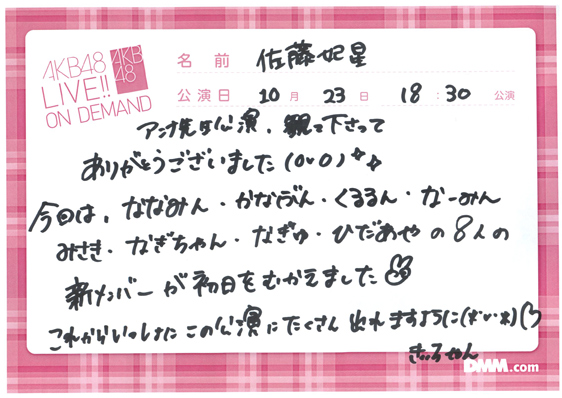 AKB48
LIVE!!
ON DEMAND
AKB
48
名前 佐藤妃星
公演日 10月 23日 18:30 公演
アンナ先公演、観て下さって
ありがとうございました(0v0)
今回は、ななみん・かなぶん・くるるん・なーみん
みさき・なぎちゃん・なぎゅ・ひだあやの8人の
新メンバーが初日をむかえました
これからいっしょにこの公演にたくさん出れますように
きぃちゃん
DMM.com